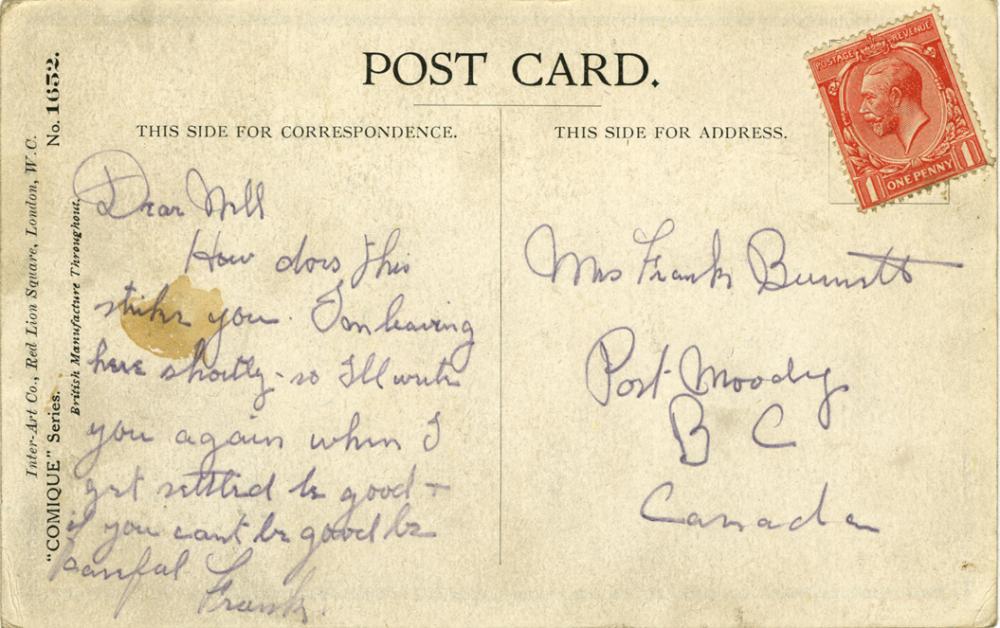 POST CARD.
THIS SIDE FOR CORRESPONDENCE.
THIS SIDE FOR ADDRESS.
POSTAGE REVENUE
1 ONE PENNY 1
No. 1652.
Inter-Art Co., Red Lion Square, London, W.C.
"COMIQUE" Series.
British Manufacture Throughout.
Dear
How does this
strike you. I'm leaving
here shortly - so I'll write
you again when I
get settled be good +
if you cant be good be
careful
Frank.
Mrs Frank Burnett
Port Moody
B C
Canada